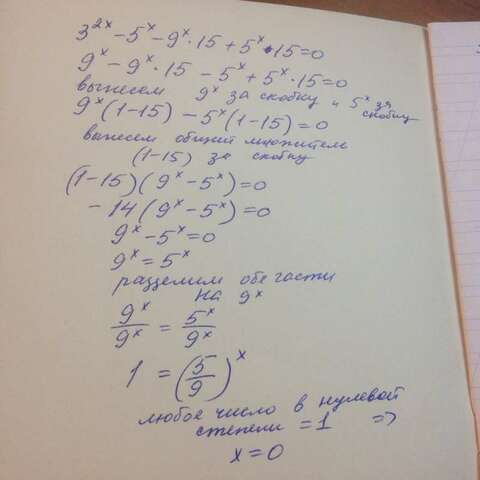 3^2x − 5^x − 9^x · 15 + 5^x · 15 = 0
9^x − 9^x · 15 − 5^x + 5^x · 15 = 0
вынесем 9^x за скобку и 5^x за скобку
9^x (1−15) − 5^x (1−15) = 0
вынесем общий множитель
(1−15) за скобку
(1−15)(9^x − 5^x) = 0
− 14 (9^x − 5^x) = 0
9^x − 5^x = 0
9^x = 5^x
разделим обе части
на 9^x
9^x/9^x = 5^x/9^x
1 = (5/9)^x
любое число в нулевой
степени = 1 =>
x = 0